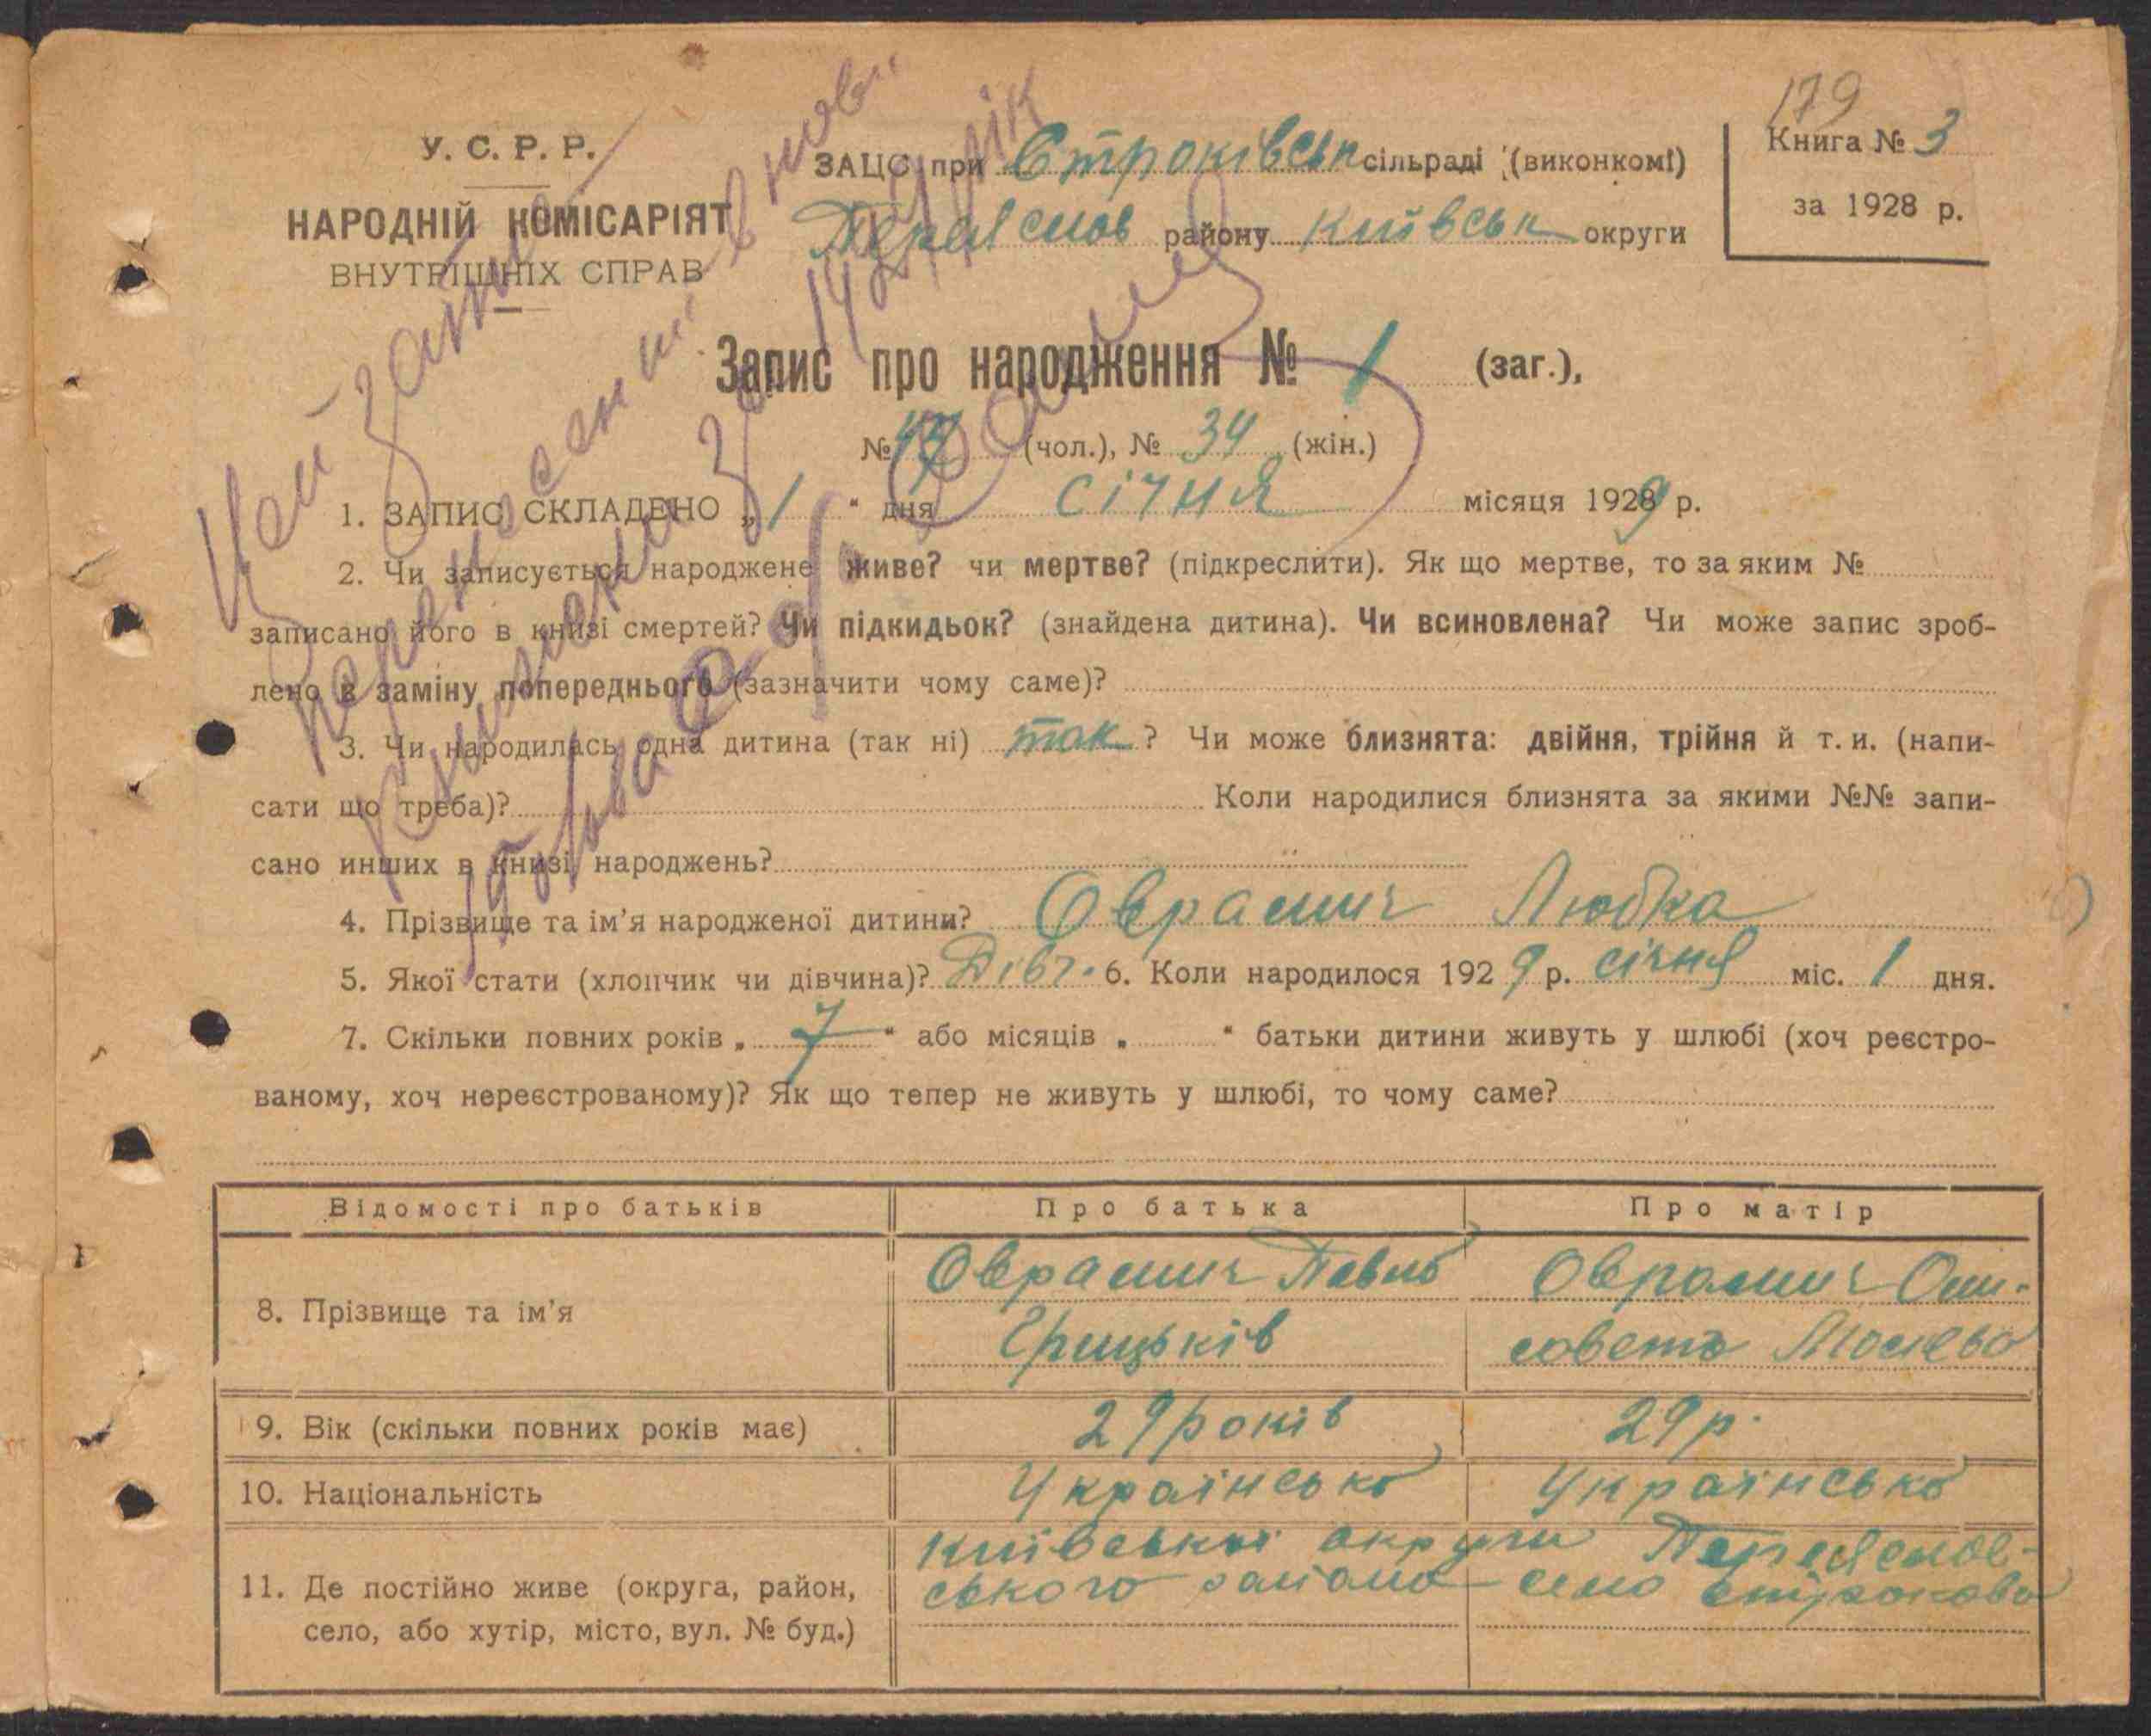 179
У. С. Р. Р.
НАРОДНІЙ КОМІСАРІЯТ
ВНУТРІШНІХ СПРАВ
ЗАЦС при Строківськ сільраді (виконкомі)
Переяслов району Київськ округи
Книга № 3
за 1928 р.
Запис про народження № 1 (заг.),
№ 47 (чол.), № 34 (жін.)
1. ЗАПИС СКЛАДЕНО „ 1 “ дня січня місяця 1929 р.
2. Чи записується народжене живе? чи мертве? (підкреслити). Як що мертве, то за яким №
записано його в книзі смертей? Чи підкидьок? (знайдена дитина). Чи всиновлена? Чи може запис зроб-
лено в заміну попереднього (зазначити чому саме)?
3. Чи народилась одна дитина (так ні) так ? Чи може близнята: двійня, трійня й т. и. (напи-
сати що треба)? Коли народилися близнята за якими №№ запи-
сано инших в книзі народжень?
4. Прізвище та ім’я народженої дитини? Оврамич Любка
5. Якої стати (хлопчик чи дівчина)? Дівч. 6. Коли народилося 1929 р. січня міс. 1 дня.
7. Скільки повних років „ 7 “ або місяців „ “ батьки дитини живуть у шлюбі (хоч реєстро-
ваному, хоч нереєстрованому)? Як що тепер не живуть у шлюбі, то чому саме?
Цей запис
перенесений в нови
книжки за 1929 рік
Відомості про батьків Про батька Про матір
8. Прізвище та ім’я
Оврамич Павло
Грицьків
Оврамич Оли-
совета
9. Вік (скільки повних років має) 29 років 29 р.
10. Національність Українсько Українсько
11. Де постійно живе (округа, район,
село, або хутір, місто, вул. № буд.)
Київської округи Переяслов-
ського району село Строкова